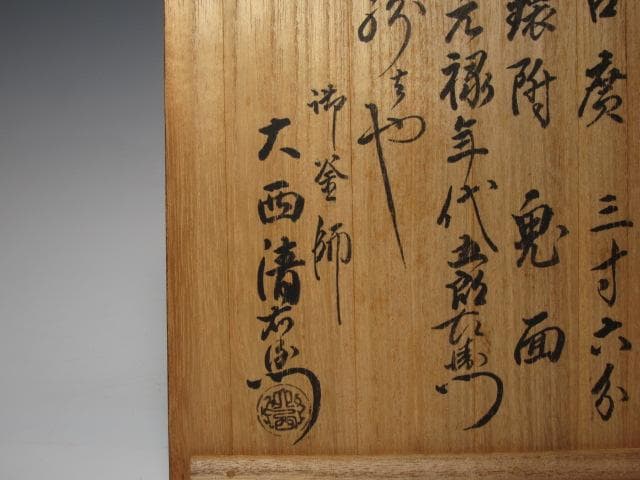 口廣 三寸六分
鐶附 鬼面
元禄年代五郎左衛門
也
御釜師
大西清右衛門